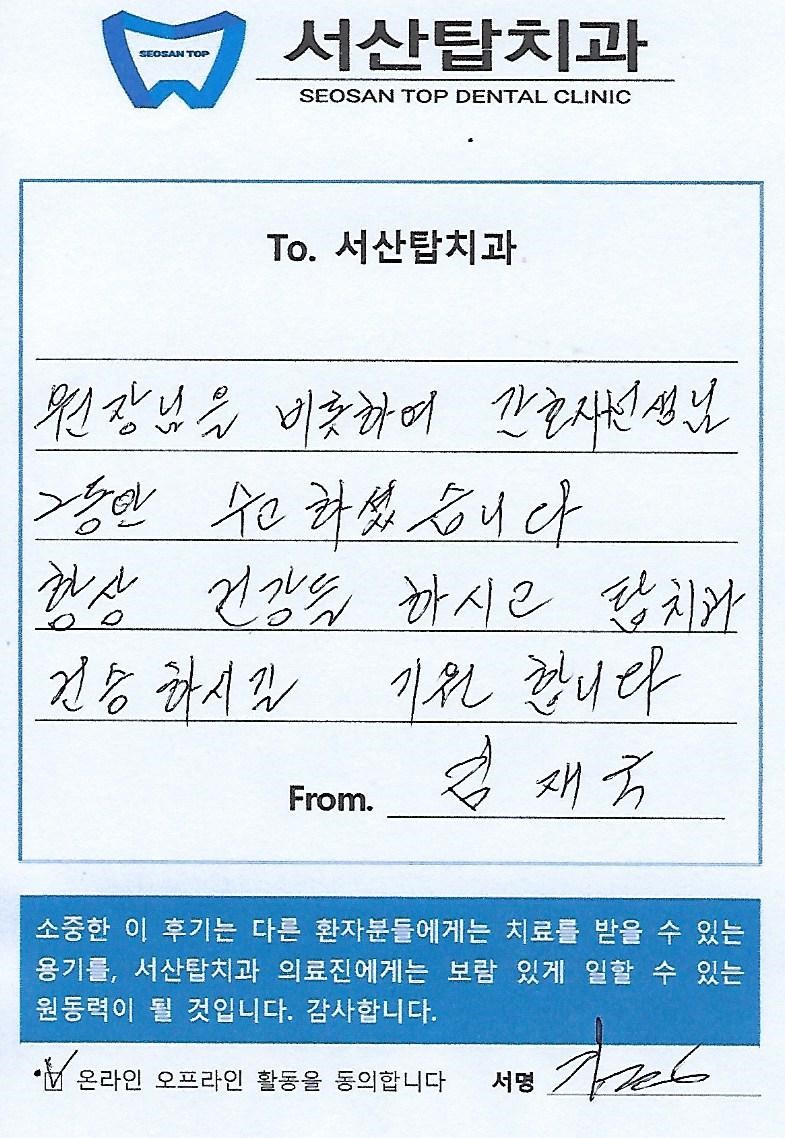 SEOSAN TOP
서산탑치과
SEOSAN TOP DENTAL CLINIC
To. 서산탑치과
원장님을 비롯하여 간호사선생님
그동안 수고 하셨습니다
항상 건강들 하시고 탑치과
건승하시길 기원 합니다
From. 김재국
소중한 이 후기는 다른 환자분들에게는 치료를 받을 수 있는
용기를, 서산탑치과 의료진에게는 보람 있게 일할 수 있는
원동력이 될 것입니다. 감사합니다.
온라인 오프라인 활동을 동의합니다 서명